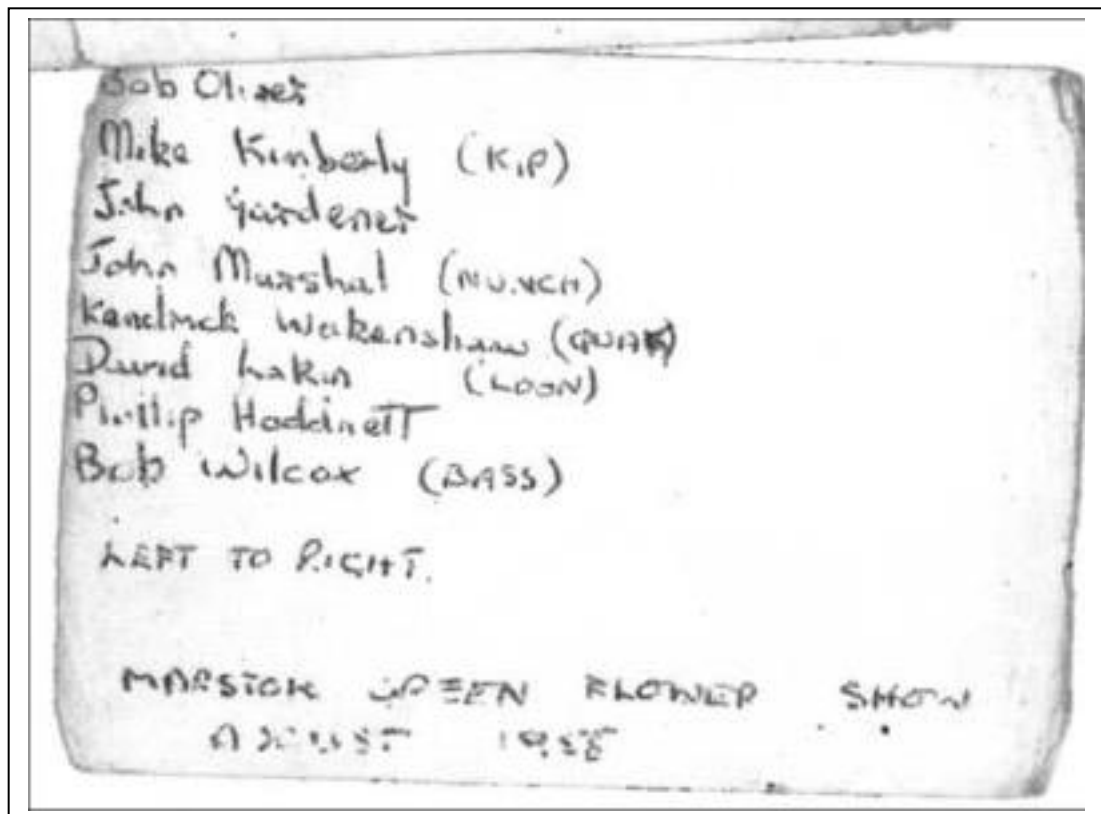 Bob Oliver
Mike Kimberly (KIP)
John Gardener
John Marshal (MUNCH)
Kendrick Wakenshaw (QUAK)
David Lakin (LOON)
Phillip Hoddinett
Bob Wilcox (BASS)
LEFT TO RIGHT.
MARSTON GREEN FLOWER SHOW
AUGUST